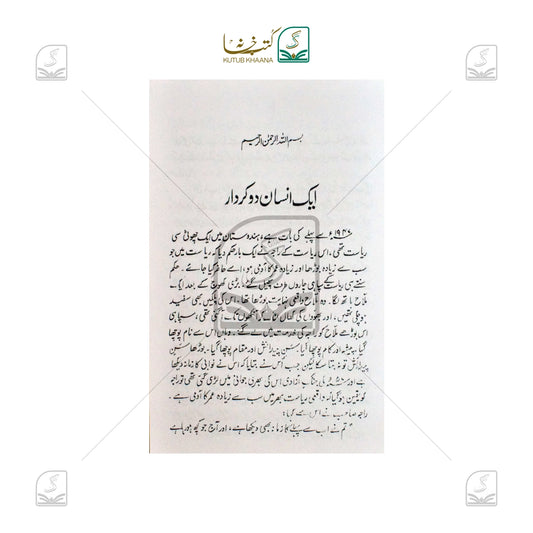 کتب خانہ
KUTUB KHAANA
بسم اللہ الرحمٰن الرحیم
ایک انسان دو کردار
۱۹۴۷ء سے پہلے کی بات ہے، ہندوستان میں ایک چھوٹی سی
ریاست تھی، اس ریاست کے راجہ نے ایک بار حکم دیا کہ ریاست میں جو
سب سے زیادہ بوڑھا اور زیادہ عمر کا آدمی ہو، اسے حاضر کیا جائے۔ حکم
سنتے ہی سپاہی چاروں طرف پھیل گئے۔ بڑی کھوج کے بعد ایک
ملاح ہاتھ لگا۔ وہ ملاح واقعی بہت بوڑھا تھا، اس کی پلکیں بھی سفید
ہو چکی تھیں، اور بھوؤں کی کھال آنکھوں تھی، سپاہی
اس بوڑھے ملاح کو راجہ کی خدمت میں لے گئے۔ وہاں اس سے نام پوچھا
گیا، پیشہ اور کام پوچھا گیا، سن پیدائش اور مقام پوچھا گیا۔ بوڑھا سن
پیدائش تو نہ بتا سکا لیکن جب اس نے بتایا کہ اس نے نوابی کا زمانہ دیکھا
ہے اور کی جنگ آزادی اس کی بھری جوانی میں لڑی گئی تھی تو راجہ
کو یقین ہو گیا کہ واقعی ریاست بھر میں سب سے زیادہ عمر کا آدمی ہے۔
راجہ صاحب نے اس سے کہا:
"تم نے اب سے پہلے کا زمانہ بھی دیکھا ہے، اور آج جو کچھ ہو رہا ہے